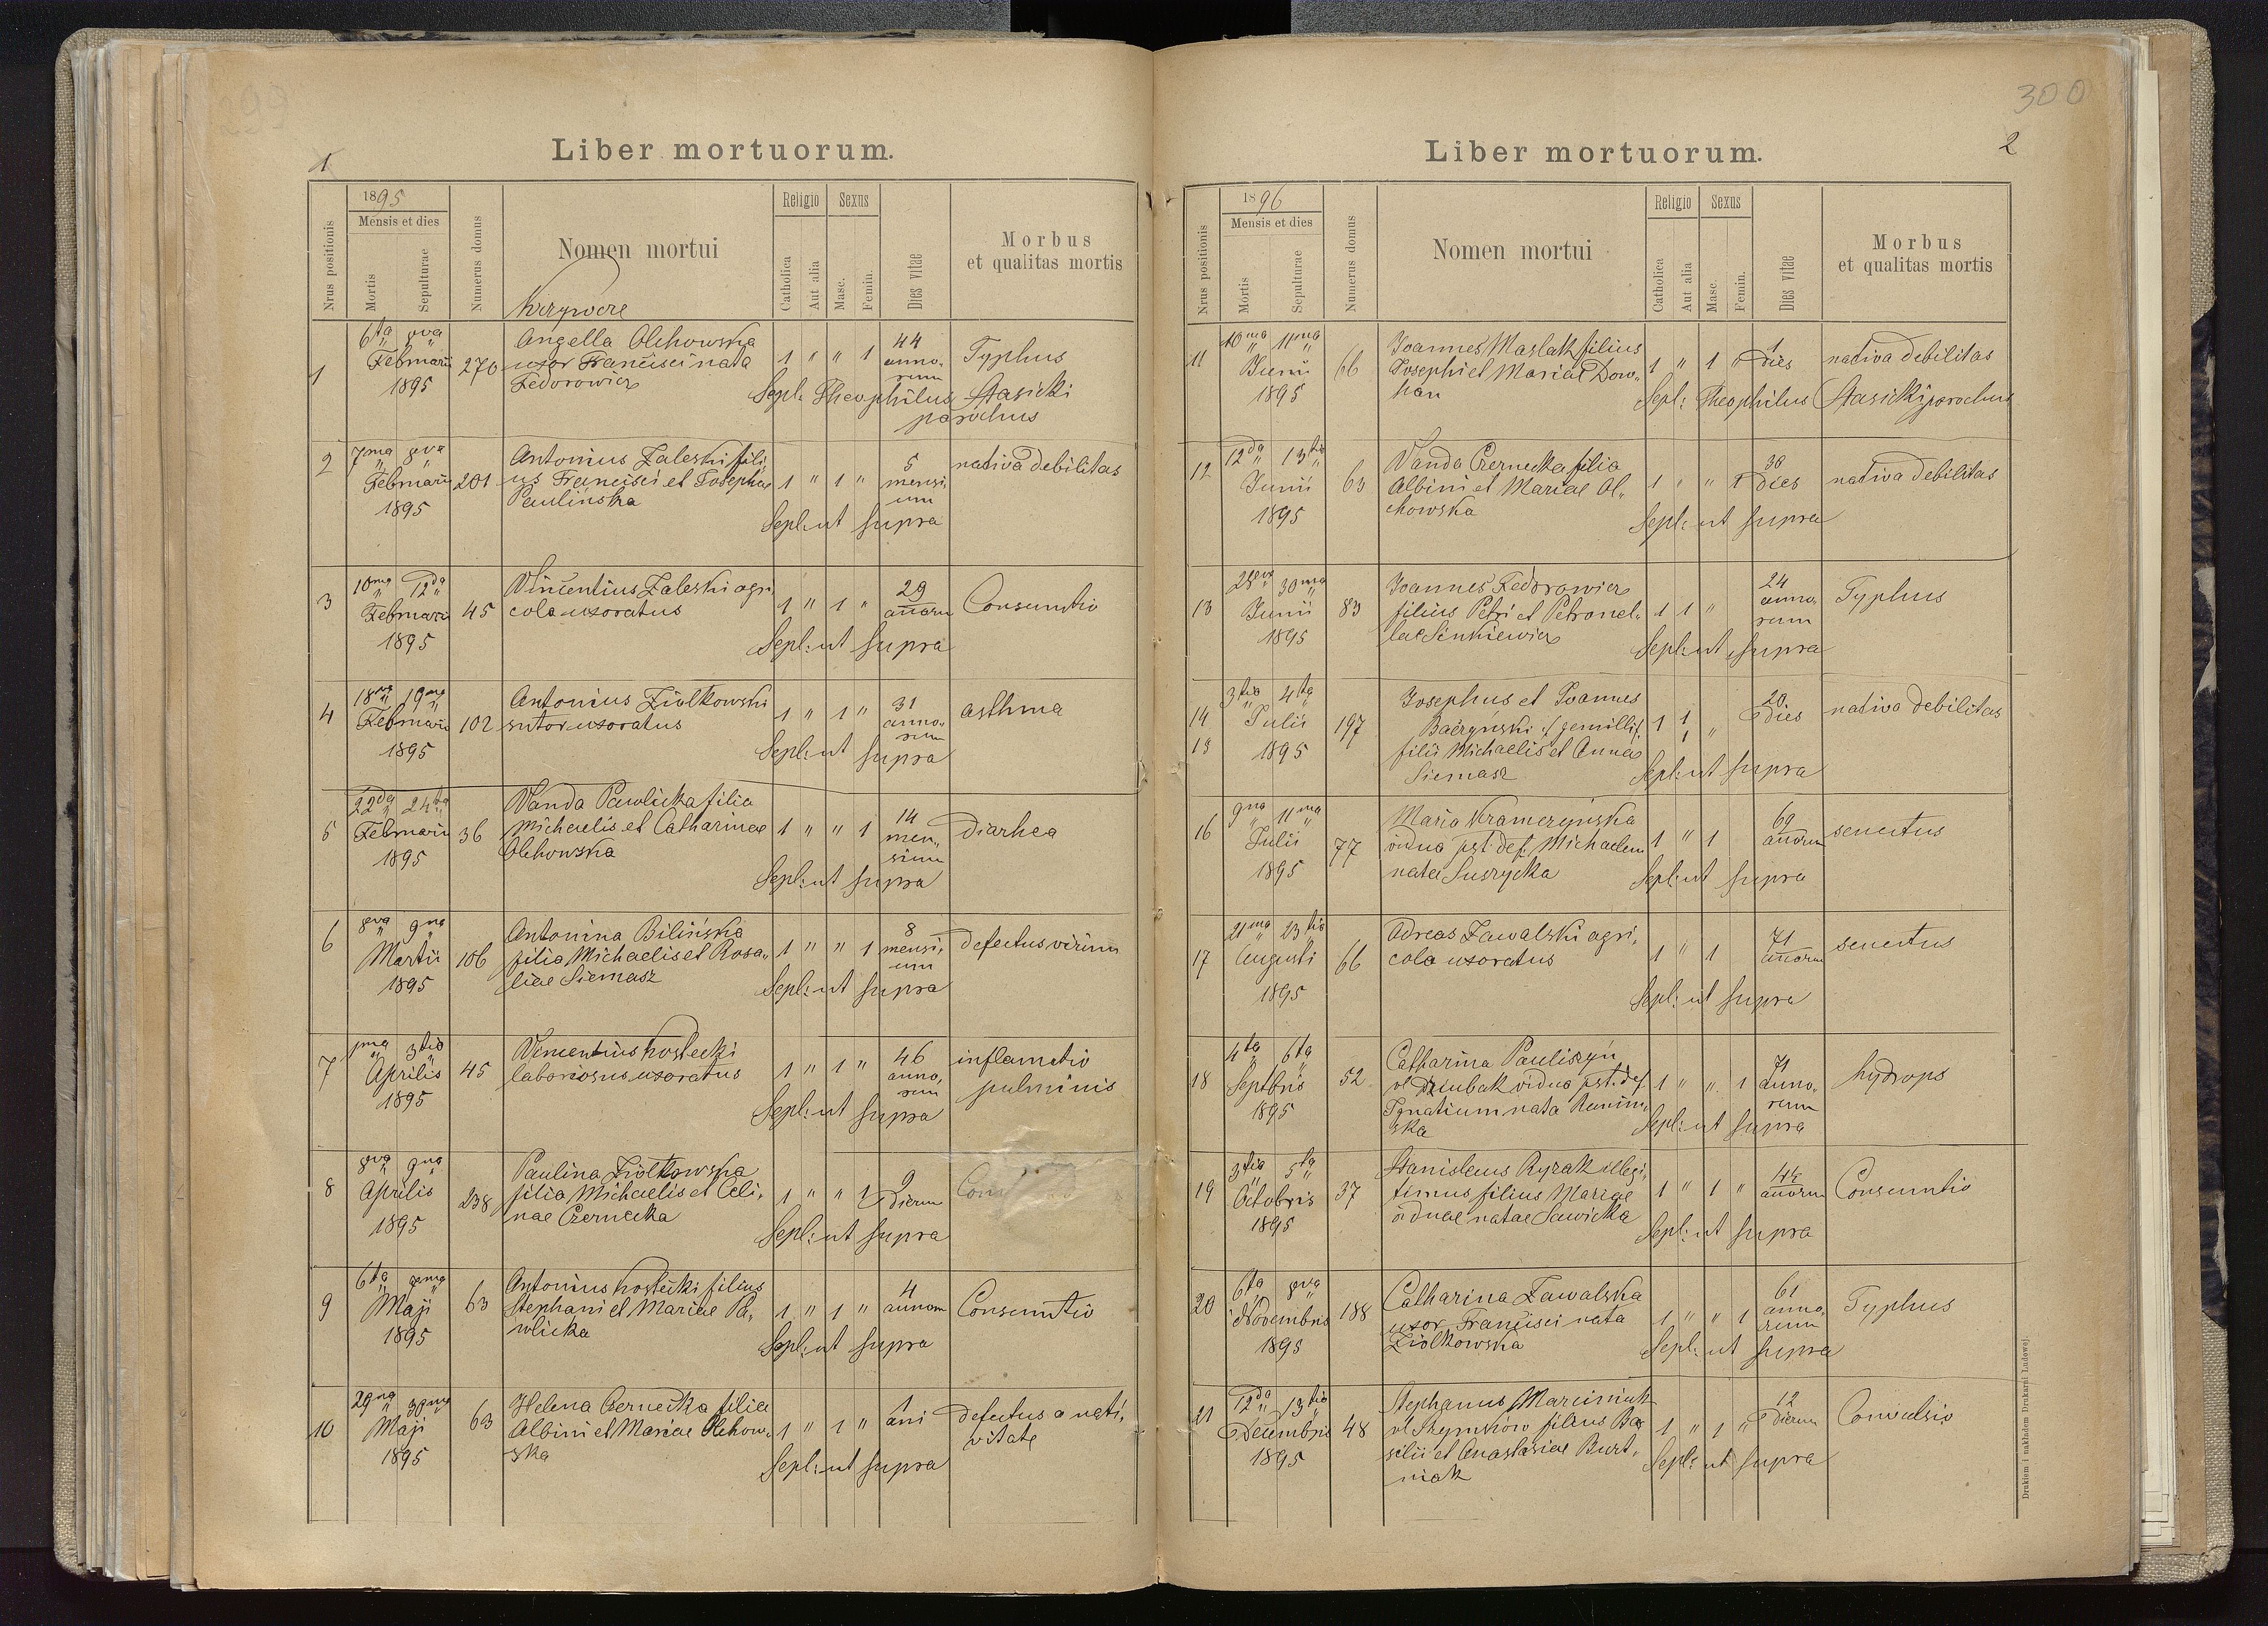 299
1
Liber mortuorum.
Nrus positionis
1895
Mensis et dies
Mortis
Sepulturae
Numerus domus
Nomen mortui
Krzywcze
Religio
Sexus
Catholica
Aut alia
Masc.
Femin.
Dies vitae
Morbus
et qualitas mortis
1
6ta 8va
Februarii
1895
270
Angella Olchowska
uxor Francisci nata
Fedorowicz
1 " " 1
44
anno-
rum
Typhus
Sepl: Theophilus Stasicki
parochus
2
7ma 8va
Februarii
1895
201
Antonius Zaleski fili-
us Francisci et Josephae
Paulińska
1 " 1 "
5
mensi-
um
nativa debilitas
Sepl: ut supra
3
10ma 12da
Februarii
1895
45
Vincentius Zaleski agri-
cola uxoratus
1 " 1 "
29
annoru
Consumtio
Sepl: ut supra
4
18va 19na
Februarii
1895
102
Antonius Ziolkowski
sutor uxoratus
1 " 1 "
31
anno-
rum
asthma
Sepl: ut supra
5
22da 24ta
Februarii
1895
36
Vanda Pawlicka filia
Michaelis et Catharinae
Olchowska
1 " " 1
14
men-
sium
diarhea
Sepl: ut supra
6
8va 9na
Martii
1895
106
Antonina Bilińska
filia Michaelis et Rosa-
liae Siemasz
1 " " 1
8
mensi-
um
defectus virium
Sepl: ut supra
7
1ma 3tia
Aprilis
1895
45
Vincentius Kostecki
laboriosus uxoratus
1 " 1 "
46
anno-
rum
inflamatio
pulminis
Sepl: ut supra
8
8va 9na
Aprilis
1895
238
Paulina Ziolkowska
filia Michaelis et Celi-
nae Czernecka
1 " " 1
9
dierum
Sepl: ut supra
9
6ta 8ma
Maji
1895
63
Antonius Kostecki filius
Stephani et Mariae Pa-
wlicka
1 " 1 "
4
annom
Consumtio
Sepl: ut supra
10
29na 30ma
Maji
1895
63
Helena Czernecka filia
Albini et Mariae Olchow-
ska
1 " 1 "
1
ani
defectus a nati-
vitate
Sepl: ut supra
300
2
Liber mortuorum.
Nrus positionis
1896
Mensis et dies
Mortis
Sepulturae
Numerus domus
Nomen mortui
Religio
Sexus
Catholica
Aut alia
Masc.
Femin.
Dies vitae
Morbus
et qualitas mortis
11
10ma 11ma
Junii
1895
66
Joannes Maslak filius
Josephi et Mariae Dow-
han
1 " 1 "
1
dies
nativa debilitas
Sepl: Theophilus Stasicki parochus
12
12da 13tia
Junii
1895
63
Vanda Czernecka filia
Albini et Mariae Ol-
chowska
1 " " 1
30
dies
nativa debilitas
Sepl: ut supra
13
28va 30ma
Junii
1895
83
Joannes Fedorowicz
filius Petri et Petronel-
lae Sinkiewicz
1 1 "
24
anno-
rum
Typhus
Sepl: ut supra
14
15
3tia 4ta
Julii
1895
197
Josephus et Joannes
Baczyński /: gemilli :/
filii Michaelis et Annae
Siemasz
1 1 "
1
20
dies
nativa debilitas
Sepl: ut supra
16
9na 11ma
Julii
1895
77
Maria Kramczyńska
vidua pst. def. Michaelem
natae Suszycka
1 " 1
69
annorum
senectus
Sepl: ut supra
17
21ma 23tia
Augusti
1895
66
Adreas Zawalski agri-
cola uxoratus
1 " 1
71
annorum
senectus
Sepl: ut supra
18
4ta 6ta
Septbris
1895
52
Catharina Pauliszyn
vl Dziubak vidua pst. def.
Ignatium nata
ska
1 " " 1
71
anno-
rum
hydrops
Sepl: ut supra
19
3tia 5ta
Octobris
1895
37
Stanislaus Ryzak illegi-
timus filius Mariae
viduae natae Sawicka
1 " 1 "
44
annorum
Consumtio
Sepl: ut supra
20
6ta 8va
Novembris
1895
188
Catharina Zawalska
uxor Francisci nata
Ziolkowska
1 " " 1
61
anno-
rum
Typhus
Sepl: ut supra
21
12da 13tia
Decembris
1895
48
Stephanus Marciniuk
vl filius Ba-
silii et Anastasiae Burt-
niak
1 " 1 "
12
dierum
Convulsio
Sepl: ut supra
Drukiem i nakładem Drukarni Ludowej.